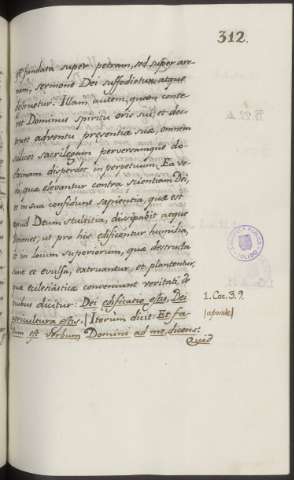 312.
est fundata super petram, sed super are-
nam, sermone Dei suffodietur, atque
destruetur. Illam autem, quem conte-
ret Dominus spiritu oris sui, et des-
truet adventu præsentiæ suæ, omnem
scilicet sacrilegam perversamque doc-
trinam disperdet in perpetuum. Ea ve-
ro, quæ elevantur contra scientiam Dei,
et in sua confidunt sapientia, quæ est
apud Deum stultitia, dissipabit atque
ut pro his ædificentur humilia,
et in locum superiorum, quæ destructa
sunt et evulsa, extruantur, et plantentur,
quæ ecclesiasticæ conveniunt veritati, de
quibus dicitur: Dei ædificatio estis, Dei
agricultura estis. | Iterum dicit: Et fa-
ctum est Verbum Domini ad me, dicens:
Quid
1. Cor. 3. 9.